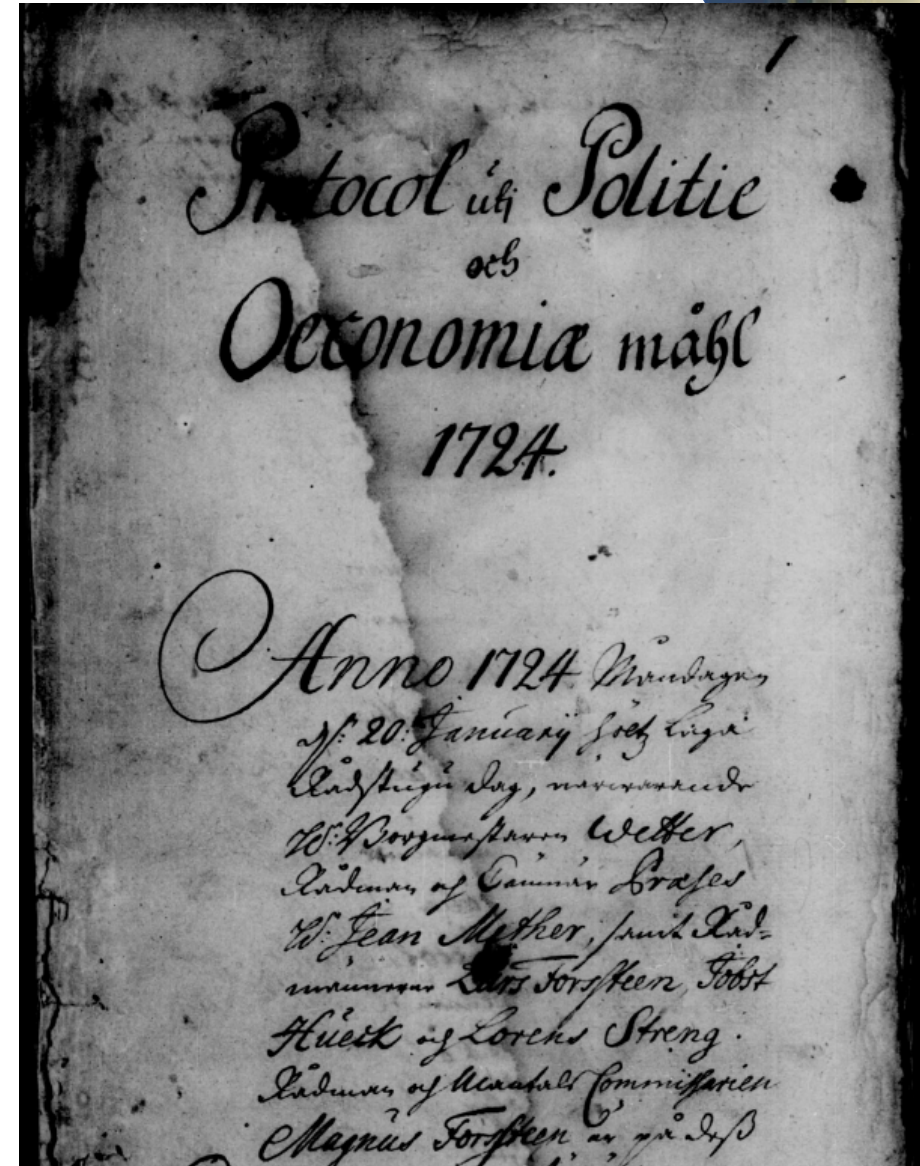 1
Protocol uti Politie
och
Oeconomiæ måhl
1724.
Anno 1724. Måndagen
d: 20: Januarij höltz laga
Rådstugu dag, närwarande
H: Borgmestaren Wetter,
Rådman och Cämnär Præses
H: Jean Mether, samt Råd=
männerne Lars Forssteen, Jobst
Hueck och Lorens Streng.
Rådman och Mantals Commissarien
Magnus Forssteen är på dess